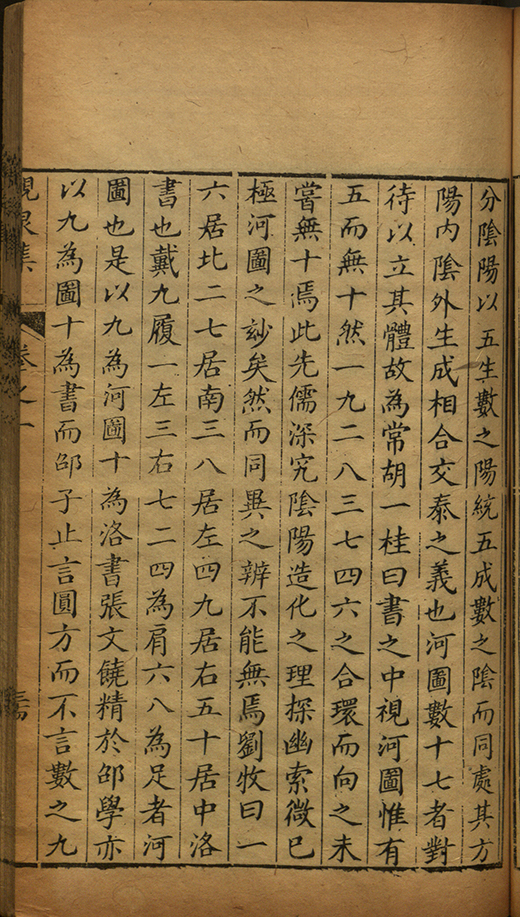 分陰陽以五生數之陽統五成數之陰而同處其方
陽内陰外生成相合交泰之義也河圖數十七者對
待以立其體故為常胡一桂曰書之中視河圖惟有
五而無十然一九二八三七四六之合環而向之未
嘗無十焉此先儒深究陰陽造化之理探幽索微已
極河圖之玅矣然而同異之辨不能無焉劉牧曰一
六居北二七居南三八居左四九居右五十居中洛
書也戴九履一左三右七二四為肩六八為足者河
圖也是以九為河圖十為洛書張文饒精於邵學亦
以九為圖十為書而邵子止言圓方而不言數之九
峴泉集 卷之一